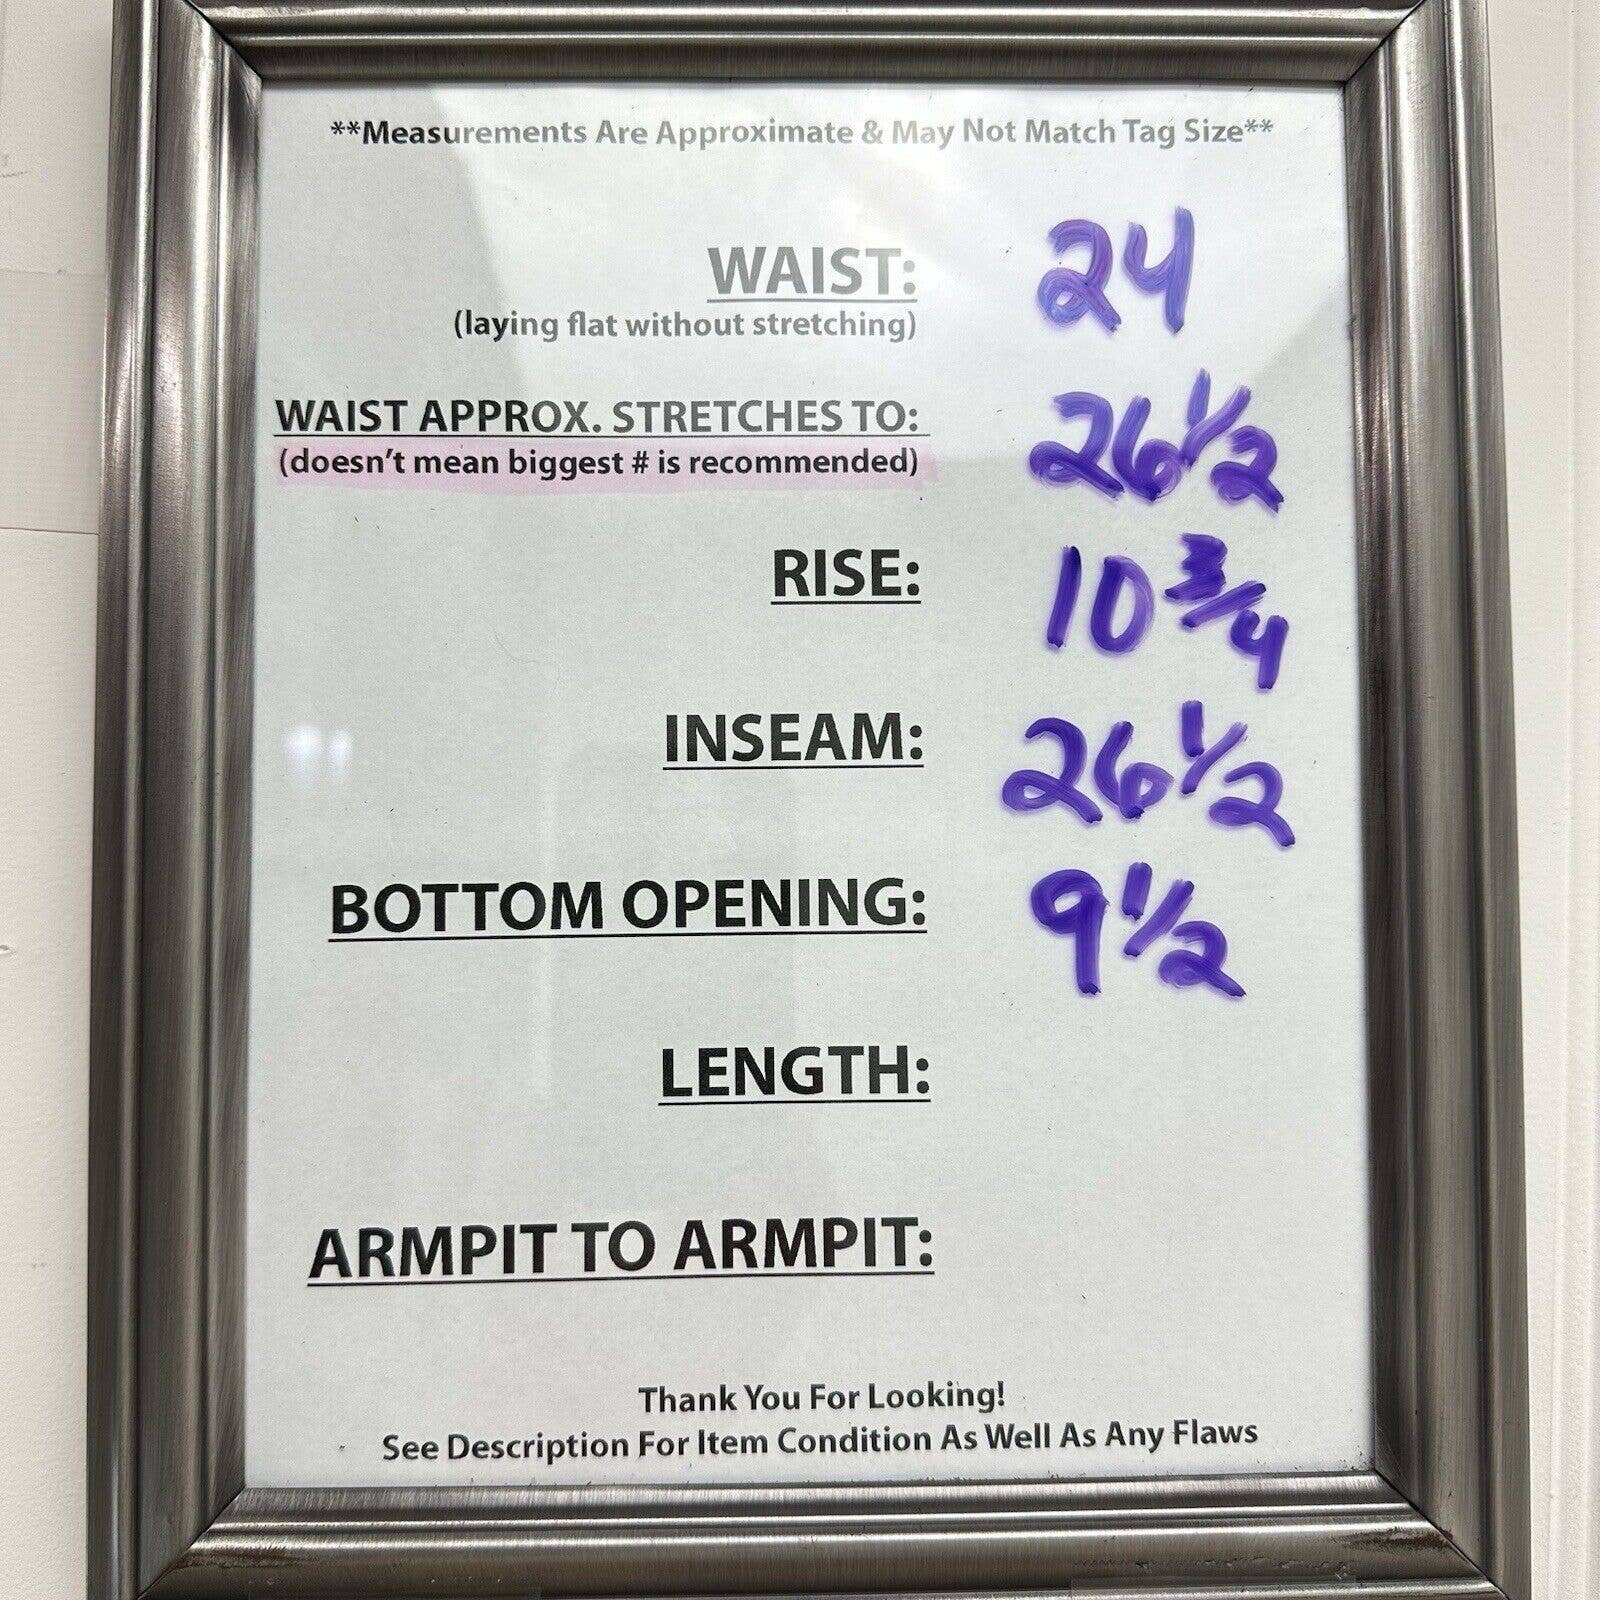 **Measurements Are Approximate & May Not Match Tag Size**
WAIST: 24
(laying flat without stretching)
WAIST APPROX. STRETCHES TO: 26 1/2
(doesn't mean biggest # is recommended)
RISE: 10 3/4
INSEAM: 26 1/2
BOTTOM OPENING: 9 1/2
LENGTH:
ARMPIT TO ARMPIT:
Thank You For Looking!
See Description For Item Condition As Well As Any Flaws